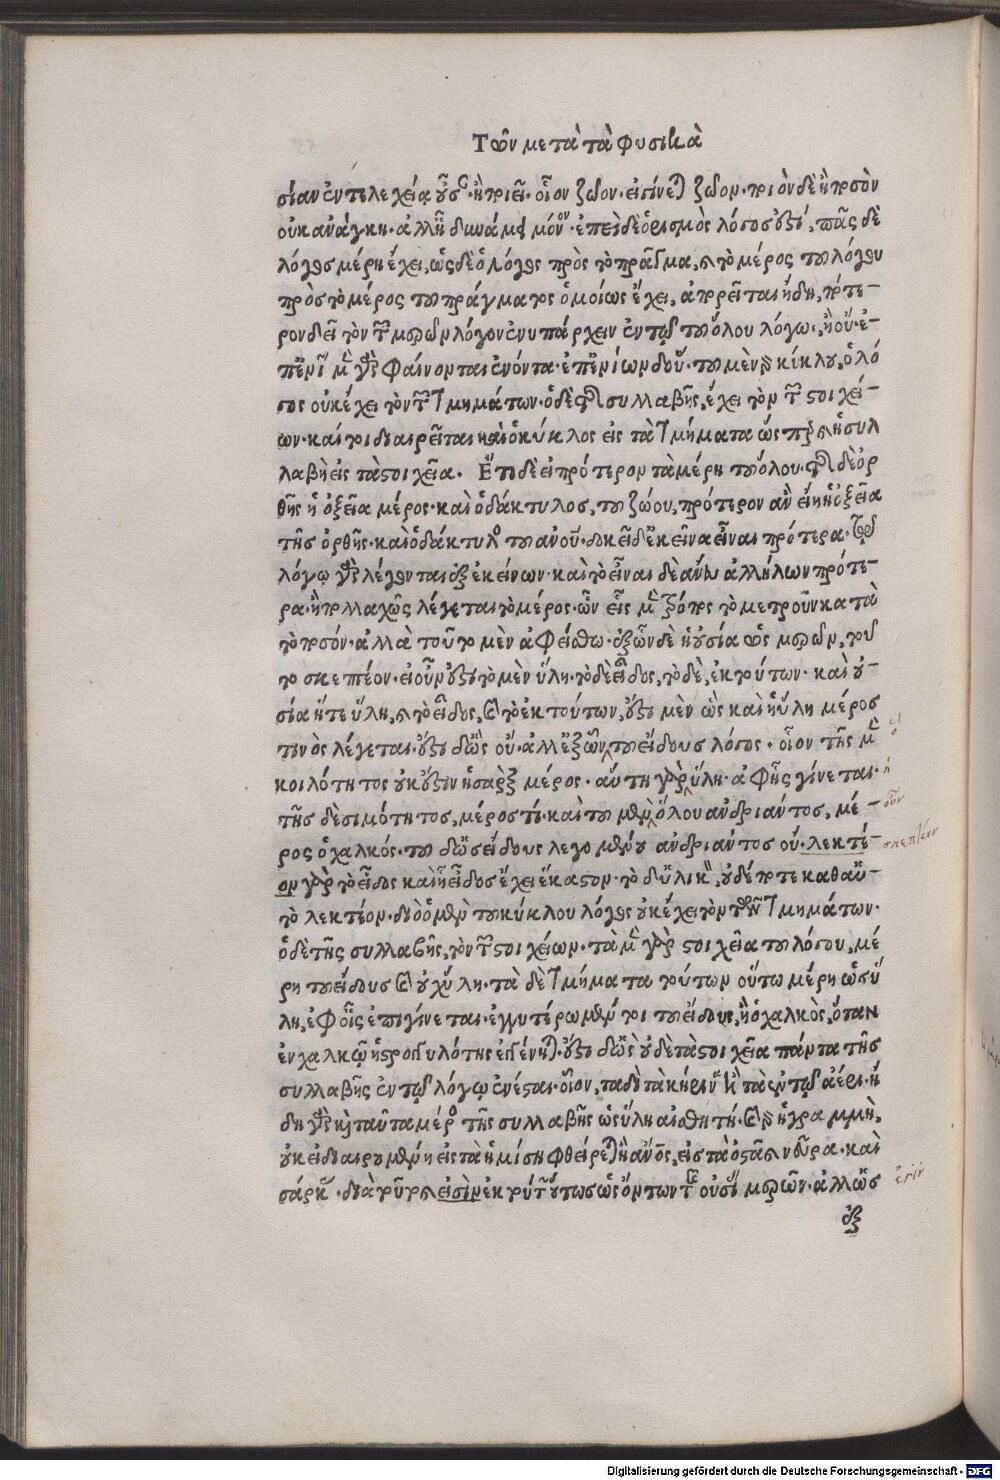 Τῶν μετὰ τὰ φυσικὰ
σίαν ἐντελεχείᾳ οὖσαν. ἢ τριεῖ. οἷον ζῶον. εἰ γίνεται ζῶον. τριὸν δὲ ἢ ποσὸν
οὐκ ἀνάγκη. ἀλλ' ἢ δυνάμει μόνον. ἐπεὶ δὲ ὁρισμὸς λόγος ἐστὶ, πᾶς δὲ
λόγος μέρη ἔχει, ὡς δὲ ὁ λόγος πρὸς τὸ πρᾶγμα, καὶ τὸ μέρος τοῦ λόγου
πρὸς τὸ μέρος τοῦ πράγματος ὁμοίως ἔχει, ἀπορεῖται ἤδη, πότε-
ρον δεῖ τὸν τῶν μερῶν λόγον ἐνυπάρχειν ἐν τῷ τοῦ ὅλου λόγω, ἢ οὔ. ἐ-
π' ἐνίων μὲν γὰρ φαίνονται ἐνόντα. ἐπ' ἐνίων δ' οὔ. τοῦ μὲν γὰρ κύκλου, ὁ λό
γος οὐκ ἔχει τὸν τῶν τμημάτων. ὁ δὲ τῆς συλλαβῆς, ἔχει τὸν τῶν στοιχεί-
ων. καίτοι διαιρεῖται καὶ ὁ κύκλος εἰς τὰ τμήματα ὥσπερ καὶ ἡ συλ
λαβὴ εἰς τὰ στοιχεῖα. Ἔτι δὲ εἰ πρότερον τὰ μέρη τοῦ ὅλου. τῆς δὲ ὀρ
θῆς ἡ ὀξεῖα μέρος. καὶ ὁ δάκτυλος, τοῦ ζώου, πρότερον ἂν εἴη ἡ ὀξεῖα
τῆς ὀρθῆς. καὶ ὁ δάκτυλος τοῦ ἀνθρώπου. δοκεῖ δ' ἐκεῖνα εἶναι πρότερα. τῷ
λόγῳ γὰρ λέγονται ἐξ ἐκείνων. καὶ τὸ εἶναι δὲ ἄνευ ἀλλήλων πρότε-
ρα. ἢ πολλαχῶς λέγεται τὸ μέρος. ὧν εἷς μὲν τρόπος τὸ μετροῦν κατὰ
τὸ ποσόν. ἀλλὰ τοῦτο μὲν ἀφείσθω. ἐξ ὧν δὲ ἡ οὐσία ὡς μερῶν, τοῦ
το σκεπτέον. εἰ οὖν ἐστι τὸ μὲν ὕλη. τὸ δὲ εἶδος, τὸ δὲ, ἐκ τούτων. καὶ οὐ-
σία ἥ τε ὕλη, καὶ τὸ εἶδος, καὶ τὸ ἐκ τούτων, ἔστι μὲν ὡς καὶ ἡ ὕλη μέρος
τινὸς λέγεται. ἔστι δ' ὡς οὔ. ἀλλ' ἐξ ὧν τοῦ εἴδους λόγος. οἷον τῆς μὲν
κοιλότητος οὐκ ἔστιν ἡ σὰρξ μέρος. αὕτη γὰρ ὕλη. ἀφ' ἧς γίνεται.
τῆς δὲ σιμότητος, μέρος τί. καὶ τοῦ μὲν ὅλου ἀνδριάντος, μέ-
ρος ὁ χαλκός. τοῦ δ' ὡς εἴδους λεγομένου ἀνδριάντος οὔ. λεκτέ-
ον γὰρ τὸ εἶδος καὶ ᾗ εἶδος ἔχει ἕκαστον. τὸ δ' ὑλικὸν, οὐδέποτε καθ' αὑ-
τὸ λεκτέον. διὸ ὁ μὲν τοῦ κύκλου λόγος οὐκ ἔχει τὸν τῶν τμημάτων.
ὁ δὲ τῆς συλλαβῆς, τὸν τῶν στοιχείων. τὰ μὲν γὰρ στοιχεῖα τοῦ λόγου, μέ
ρη τοῦ εἴδους καὶ οὐχ ὕλη. τὰ δὲ τμήματα τούτων οὕτω μέρη ὡς ὕ
λη, ἐφ' οἷς ἐπιγίνεται. ἐγγυτέρω μέντοι τοῦ εἴδους, ἢ ὁ χαλκὸς, ὅταν
ἐν χαλκῷ ἡ στρογγυλότης ἐγγένηται. ἔστι δ' ὡς οὐδὲ τὰ στοιχεῖα πάντα τῆς
συλλαβῆς ἐν τῷ λόγῳ ἐνέσται. οἷον, ταδὶ τὰ κήρινα ἢ τὰ ἐν τῷ ἀέρι. ἤ
δη γὰρ καὶ ταῦτα μέρος τῆς συλλαβῆς ὡς ὕλη αἰσθητή. καὶ γὰρ ἡ γραμμὴ,
οὐκ εἰ διαιρουμένη εἰς τὰ ἡμίση φθείρεται ἢ ὁ ἄνθρωπος, εἰς τὰ ὀστᾶ καὶ νεῦρα. καὶ
σάρκας. διὰ τοῦτο καὶ εἰσὶν ἐκ τούτων οὕτως ὡς ὄντων τῆς οὐσίας μερῶν. ἀλλ' ὡς
ἐξ
ὁ
ἡ
οὖν
σκεπτέον